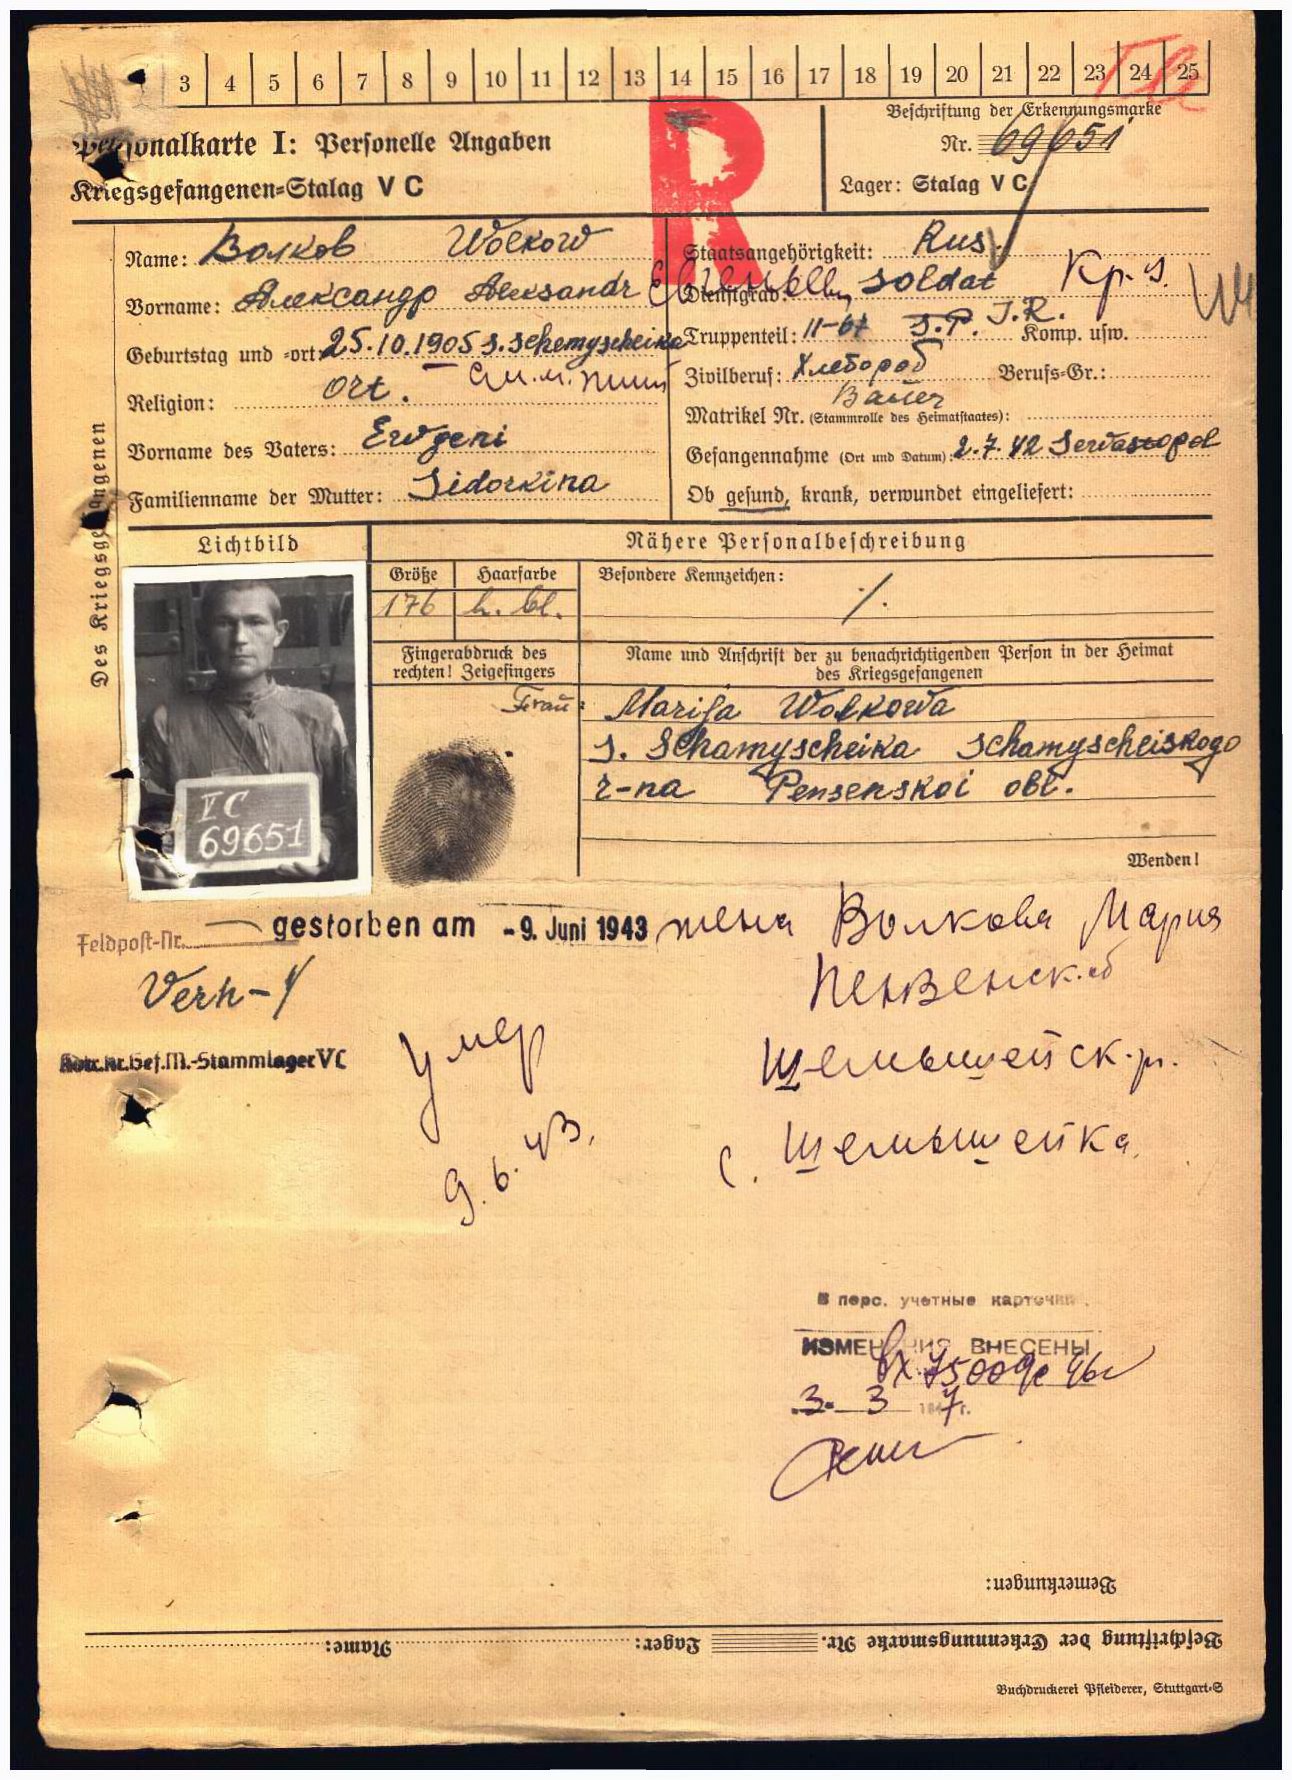 3 4 5 6 7 8 9 10 11 12 13 14 15 16 17 18 19 20 21 22 23 24 25
Tbc
Personalkarte I: Personelle Angaben
Kriegsgefangenen=Stalag V C
R
Beschriftung der Erkennungsmarke
Nr. 69651
Lager: Stalag V C
Des Kriegsgefangenen
Name: Волков Wolkow
Vorname: Александр Aleksandr Евгеньев
Geburtstag und =ort: 25.10.1905 s. Schemyscheika
Religion: ort.
Vorname des Vaters: Ewgeni
Familienname der Mutter: Sidorkina
Staatsangehörigkeit: Rus.
Dienstgrad: Soldat Кр.
Truppenteil: 11-67 S.P. I.R. Komp. usw.
Zivilberuf: Хлебороб Berufs=Gr.:
Bauer
Matrikel Nr. (Stammrolle des Heimatstaates):
Gefangennahme (Ort und Datum): 2.7.42 Sewastopol
Ob gesund, krank, verwundet eingeliefert:
Lichtbild
Nähere Personalbeschreibung
Größe Haarfarbe Besondere Kennzeichen:
176 h. bl. ./.
Fingerabdruck des
rechten! Zeigefingers
Name und Anschrift der zu benachrichtigenden Person in der Heimat
des Kriegsgefangenen
Frau: Marija Wolkowa
s. Schamyscheika Schamyscheiskogo
r-na Pensenskoi obl.
V C
69651
Wenden!
Feldpost-Nr. gestorben am -9. Juni 1943 жена Волкова Мария
Пензенск. об
Шемышейск. р.
с. Шемышейка
Kr.Gef.M.-Stammlager V C
Умер
9.6.43.
В перс. учетные карточки
ИЗМЕНЕНИЯ ВНЕСЕНЫ
вх 46г
3. 3 1947 г.
Bemerkungen:
Beschriftung der Erkennungsmarke Nr. Lager: Name:
Buchdruckerei Pfleiderer, Stuttgart=S